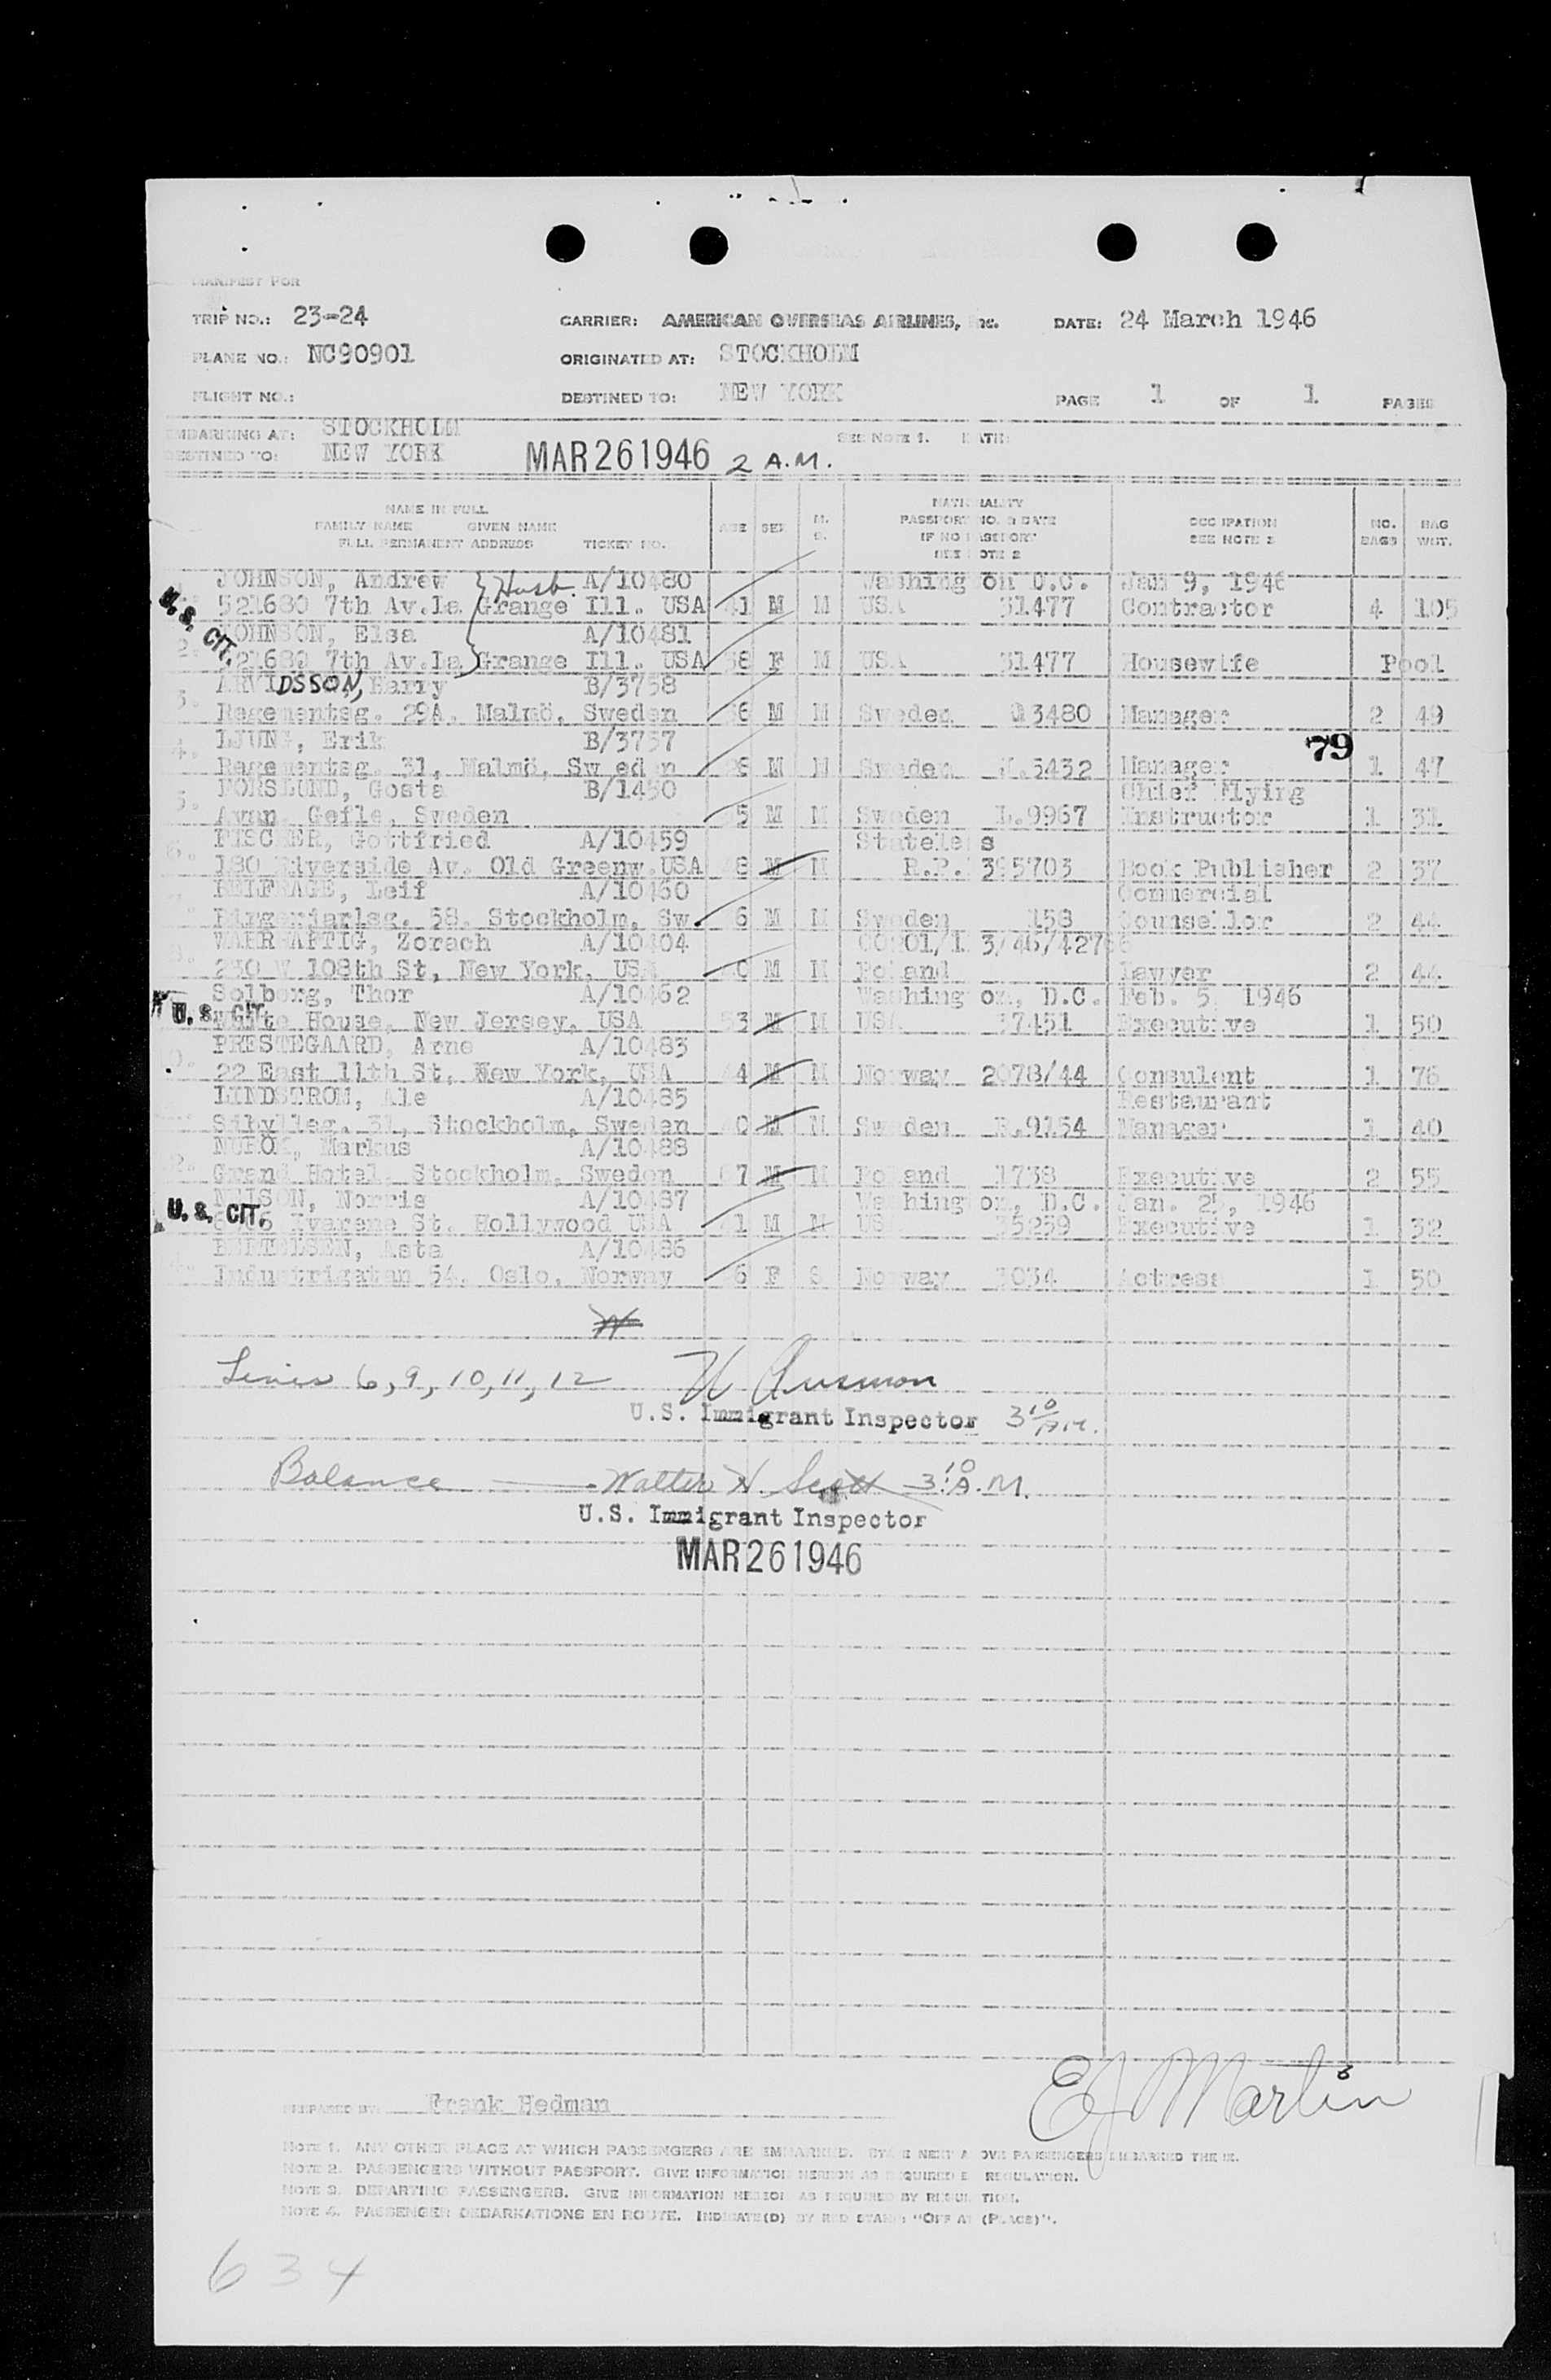 MANIFEST FOR
TRIP NO.: 23-24 CARRIER: AMERICAN OVERSEAS AIRLINES, Inc. DATE: 24 March 1946
PLANE NO.: NC90901 ORIGINATED AT: STOCKHOLM
FLIGHT NO.: DESTINED TO: NEW YORK PAGE 1 OF 1 PAGES
EMBARKING AT: STOCKHOLM SEE NOTE 1. DATE:
DESTINED TO: NEW YORK MAR 26 1946 2 A.M.
NAME IN FULL
FAMILY NAME GIVEN NAME
FULL PERMANENT ADDRESS TICKET NO. AGE SEX M. S. NATIONALITY PASSPORT NO. & DATE IF NO PASSPORT SEE NOTE 2 OCCUPATION SEE NOTE 3 NO. BAGS BAG WGT.
JOHNSON, Andrew Husb. A/10480 Washington D.C. Jan 9, 1946
U.S. CIT. 521680 7th Av.La Grange Ill. USA 41 M M USA 31477 Contractor 4 105
JOHNSON, Elsa A/10481
2. 521680 7th Av.La Grange Ill. USA 38 F M USA 31477 Housewife Pool
ARVIDSSON, Harry B/3758
3. Regementsg. 29A. Malmö, Sweden 6 M M Sweden 3480 Manager 2 49
LJUNG, Erik B/3757
4. Regementsg. 31, Malmö, Sweden M M Sweden 5432 Manager 79 1 47
FORSLUND, Gosta B/1450 Chief Flying
5. Gefle, Sweden 5 M M Sweden L.9967 Instructor 1 31
FISCHER, Gottfried A/10459 Stateless
6. 180 Riverside Av. Old Greenw. USA 8 M M R.P. 395703 Book Publisher 2 37
BELFRAGE, Leif A/10460 Commercial
7. Birgerjarlsg. 58. Stockholm, Sw. 6 M M Sweden 158 Counsellor 2 44
WAHRHAFTIG, Zorach A/10404 3/46/427
8. 230 W 108th St, New York, USA 0 M M Poland Lawyer 2 44
Solberg, Thor A/10462 Washington, D.C. Feb. 5, 1946
U.S. CIT. White House, New Jersey, USA 53 M M USA 17451 Executive 1 50
PRESTEGAARD, Arne A/10483
10. 22 East 11th St, New York, USA 44 M M Norway 2078/44 Consulent 1 76
LINDSTROM, Ale A/10485 Restaurant
Sibylleg. 31, Stockholm, Sweden 0 M M Sweden R.9154 Manager 1 40
NUROK, Markus A/10488
12. Grand Hotel, Stockholm, Sweden 67 M M Poland 1738 Executive 2 55
NILSON, Norris A/10487 Washington, D.C. Jan. 25, 1946
U.S. CIT. Ivarene St. Hollywood USA 41 M M USA 35259 Executive 1 32
BERTELSEN, Aste A/10486
Industrigatan 54, Oslo, Norway 6 F S Norway 1034 Actress 1 50
Lines 6, 9, 10, 11, 12
U.S. Immigrant Inspector 3 10 A.M.
Balance Walter H. Scott 3:10 A.M.
U.S. Immigrant Inspector
MAR 26 1946
E J Martin
PREPARED BY: Frank Hedman
NOTE 1. ANY OTHER PLACE AT WHICH PASSENGERS ARE EMBARKED. STATE NEXT ABOVE PASSENGERS EMBARKED THERE.
NOTE 2. PASSENGERS WITHOUT PASSPORT. GIVE INFORMATION HEREON AS REQUIRED BY REGULATION.
NOTE 3. DEPARTING PASSENGERS. GIVE INFORMATION HEREON AS REQUIRED BY REGULATION.
NOTE 4. PASSENGER DEBARKATIONS EN ROUTE. INDICATE(D) BY RED STAMP: "OFF AT (PLACE)".
634